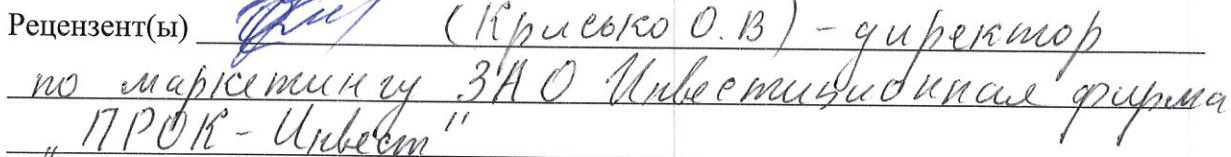 Рецензент(ы) (Крисько О.В) - директор
по маркетингу ЗАО Инвестиционная фирма
„ПРОК - Инвест"